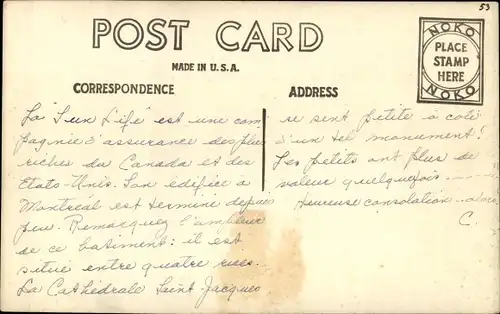 53
POST CARD
MADE IN U.S.A.
NOKO
PLACE
STAMP
HERE
NOKO
CORRESPONDENCE
ADDRESS
La "Sun Life" est une com
pagnie d'assurance des plus
riches du Canada et des
Etats-Unis. Son édifice a
Montréal est terminé depuis
peu. Remarquez l'ampleur
de ce batiment: il est
situé entre quatre rues.
La Cathédrale Saint Jacques
se sent petite à coté
d'un tel monument!
Les petits ont plus de
valeur quelquefois
Heureuse consolation
C.